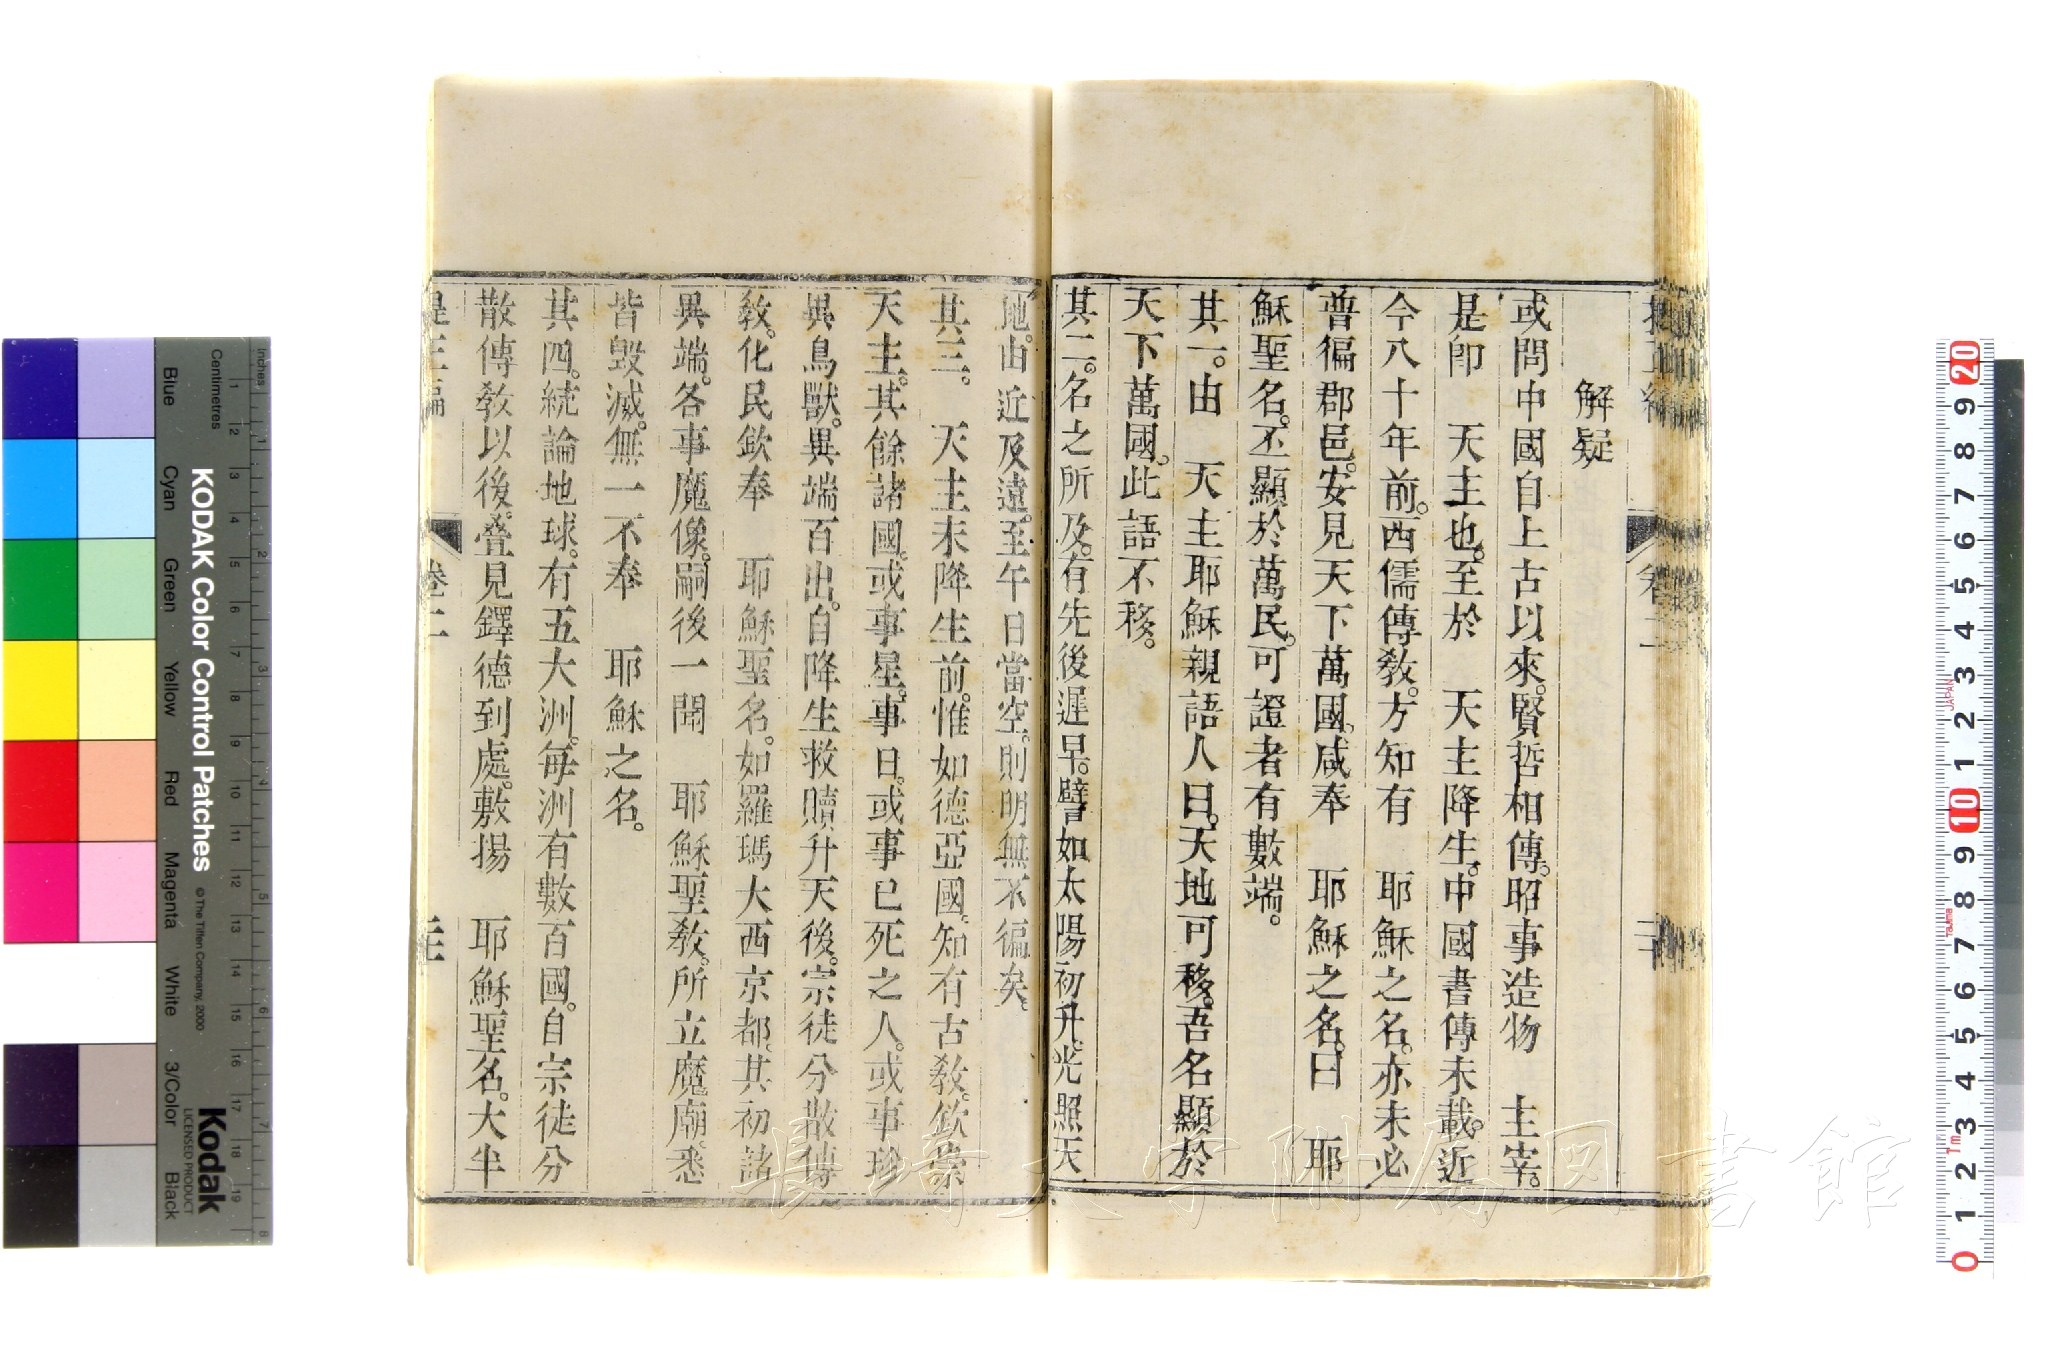 解疑
或問中國自上古以來。賢哲相傳。昭事造物　主宰。
是卽　天主也。至於　天主降生。中國書傳未載。近
今八十年前。西儒傳敎。方知有　耶穌之名。亦未必
普徧郡邑。安見天下萬國。咸奉　耶穌之名。曰　耶
穌聖名。丕顯於萬民。可證者有數端。
其一。由　天主耶穌親語人曰。天地可移。吾名顯於
天下萬國。此語不移。
其二。名之所及。有先後遲早。譬如太陽初升。光照天
地。由近及遠。至午日當空。則明無不徧矣。
其三。　天主未降生前。惟如德亞國。知有古敎。欽崇
天主。其餘諸國。或事星。事日。或事已死之人。或事珍
異鳥獸。異端百出。自降生救贖升天後。宗徒分散傳
敎。化民欽奉　耶穌聖名。如羅瑪大西京都。其初諸
異端。各事魔像。嗣後一聞　耶穌聖敎。所立魔廟。悉
皆毀滅。無一不奉　耶穌之名。
其四。統論地球。有五大洲。每洲有數百國。自宗徒分
散傳敎以後。叠見鐸德到處。敷揚　耶穌聖名。大半
卷二
長崎大学附属図書館
KODAK Color Control Patches
© The Tiffen Company, 2000
Kodak
LICENSED PRODUCT
Inches
Centimetres
Blue
Cyan
Green
Yellow
Red
Magenta
White
3/Color
Black
JAPAN
Tajima